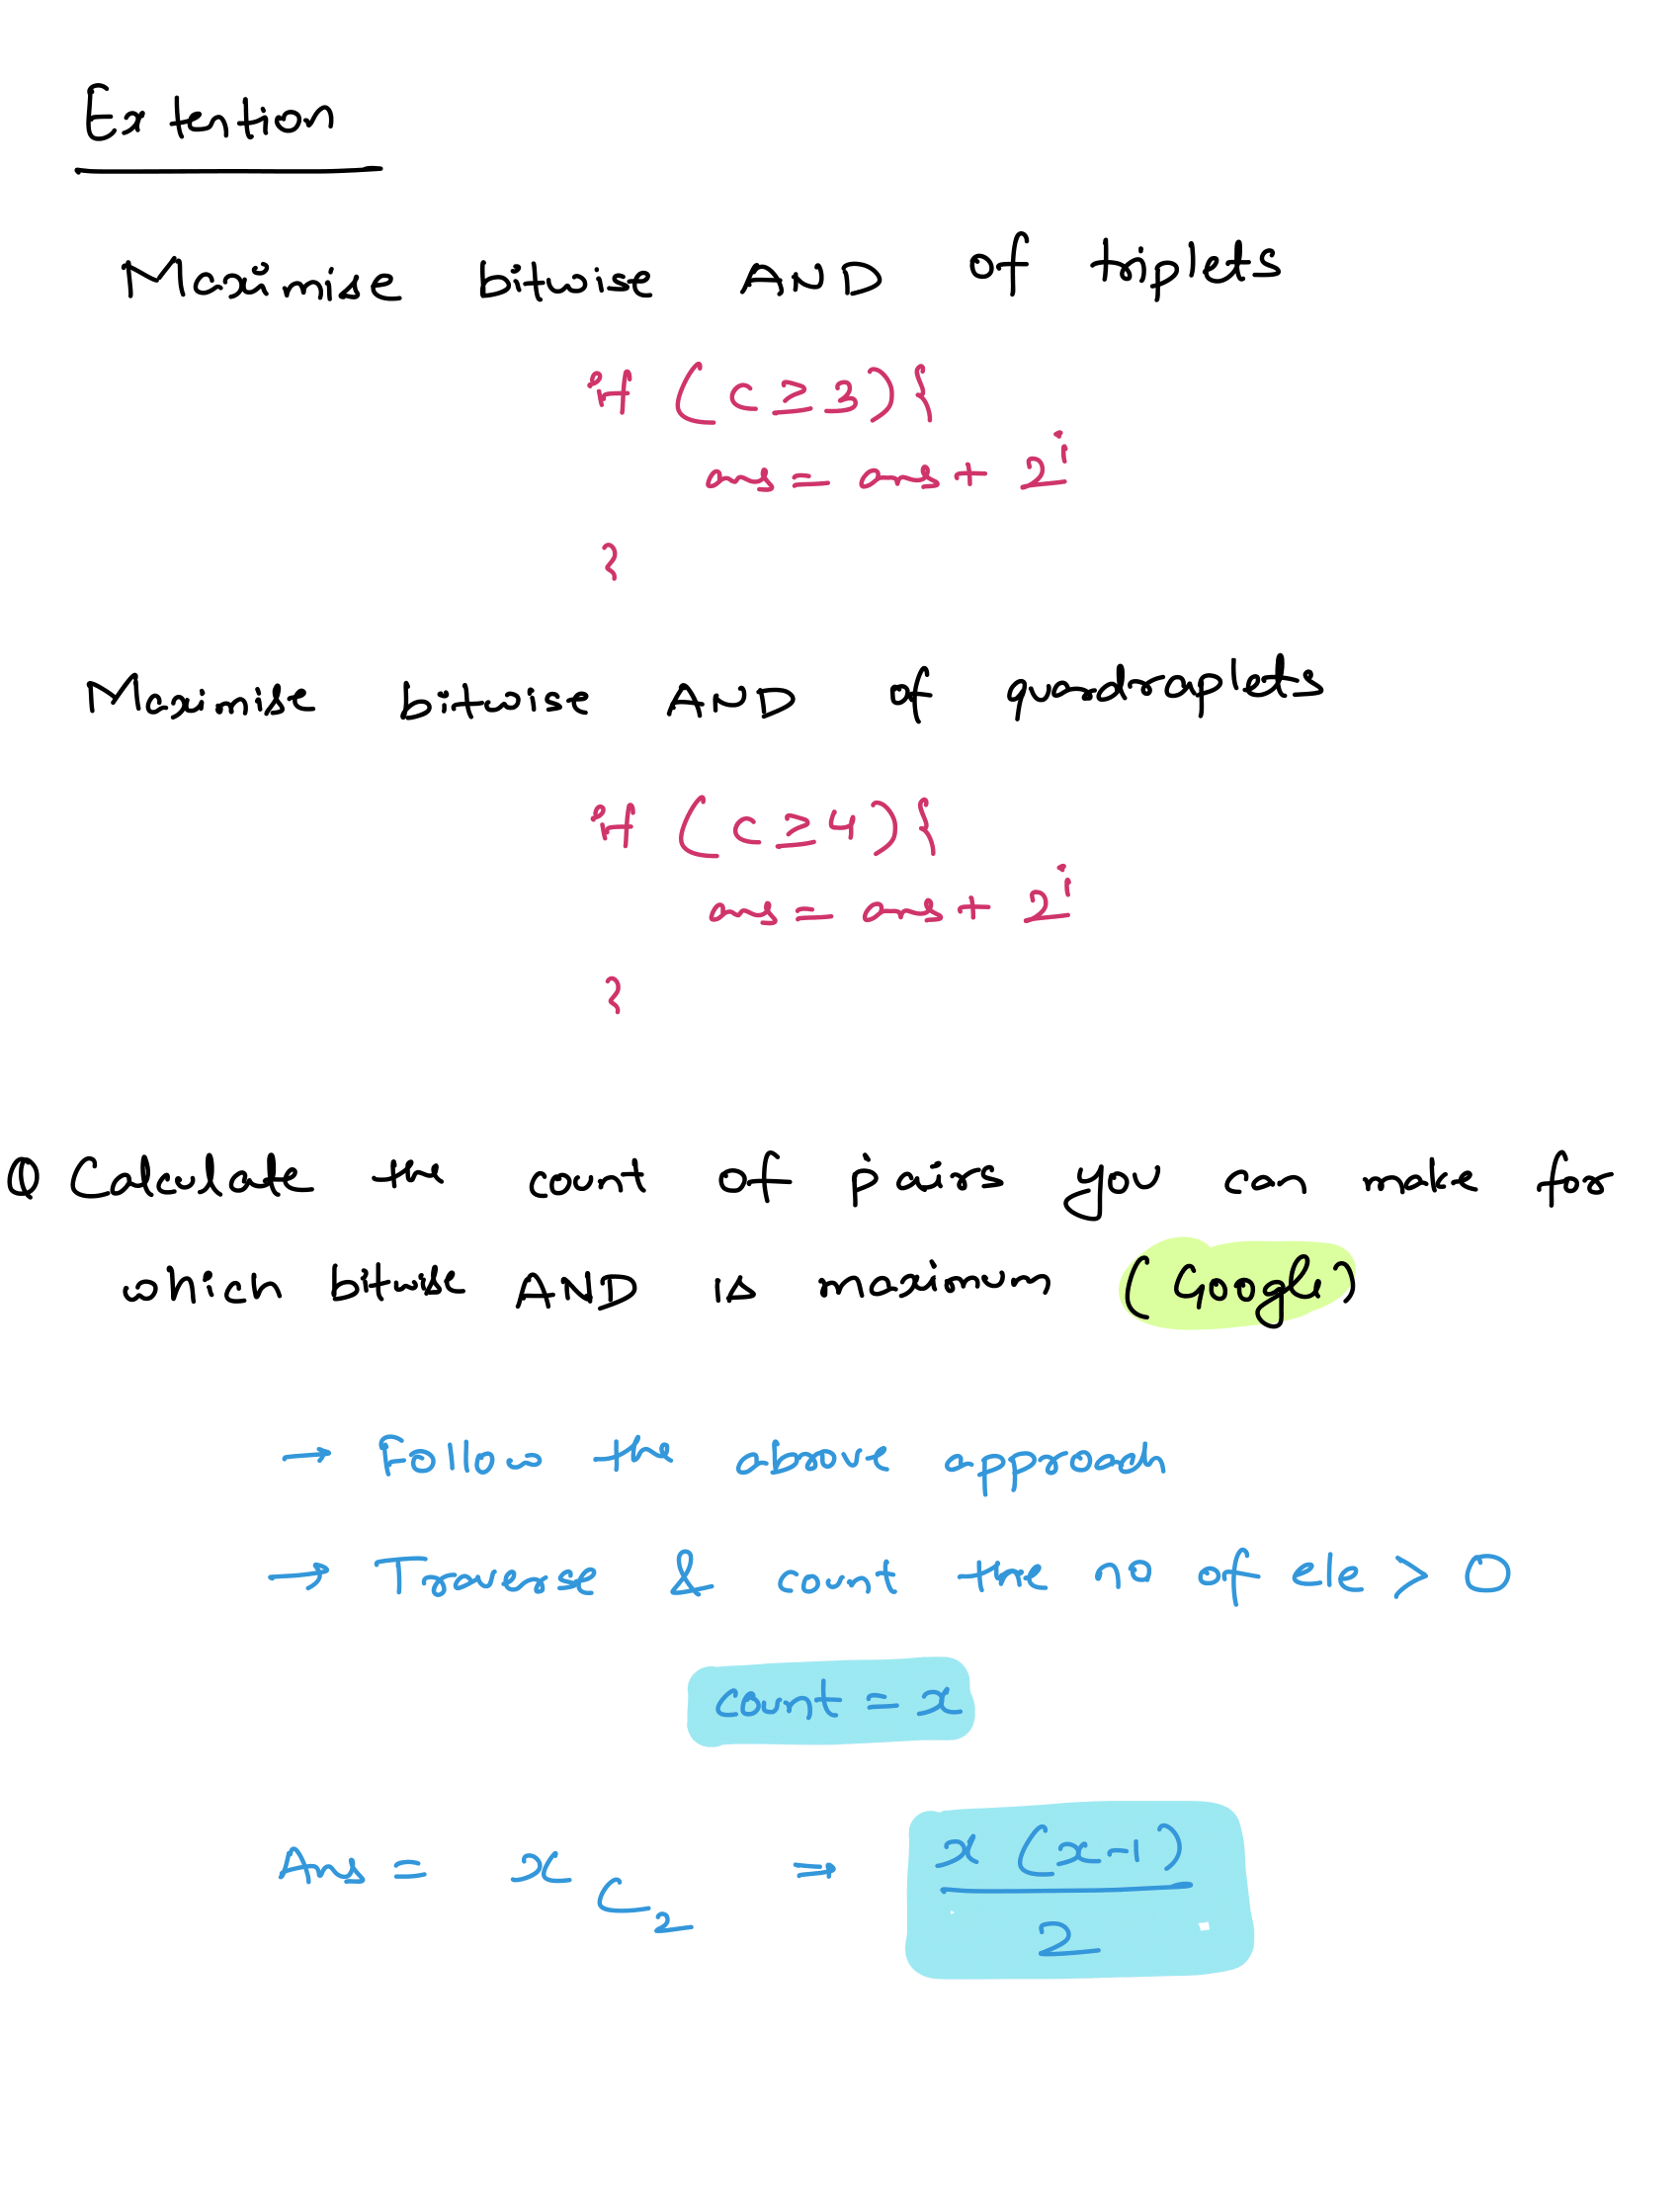 Extention
Maximise bitwise AND of triplets
if (c ≥ 3) {
ans = ans + 2^i
}
Maximise bitwise AND of quadraplets
if (c ≥ 4) {
ans = ans + 2^i
}
Q Calculate the count of pairs you can make for
which bitwise AND is maximum (Google)
→ Follow the above approach
→ Traverse & count the no of ele > 0
count = x
Ans = x C 2 ⇒ x (x-1) / 2